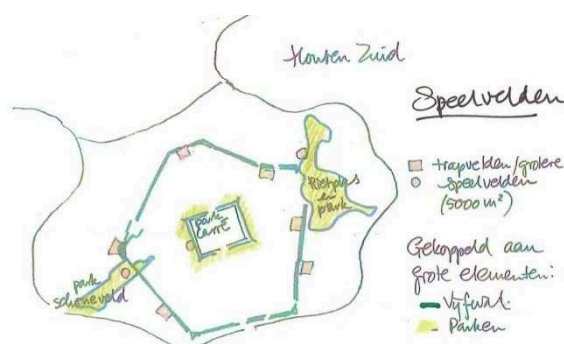 Houten Zuid
Speelvelden
trapvelden/grotere
speelvelden
(5000 m²)
Gekoppeld aan
grote elementen:
Vijfwal
Parken
Rietplas
en park
park
carré
park
schoneveld